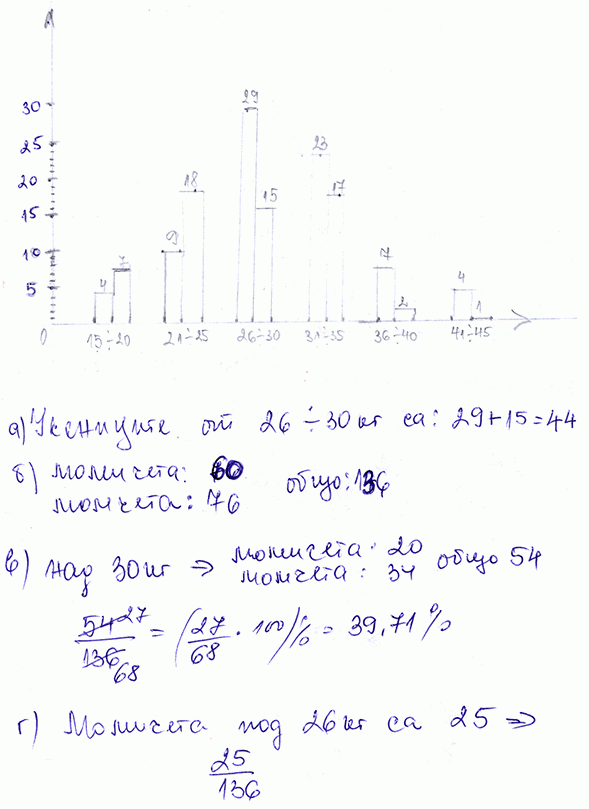 А
30
29
25
23
20
18
17
15
15
10
9
7
7
5
4
4
2
1
0
15÷20 21÷25 26÷30 31÷35 36÷40 41÷45
а) Учениците от 26÷30 кг са: 29+15=44
б) момичета: 60
момчета: 76 общо: 136
в) над 30 кг ⇒ момичета: 20
момчета: 34 общо 54
54 27 / 136 68 = (27/68 · 100)% = 39,71%
г) Момичета под 26 кг са 25 ⇒
25/136